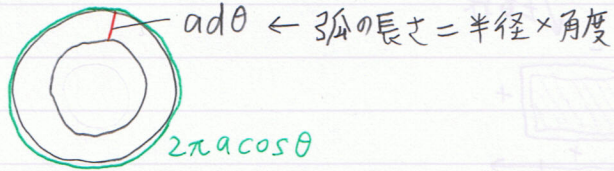 adθ ← 弧の長さ＝半径×角度
2πacosθ